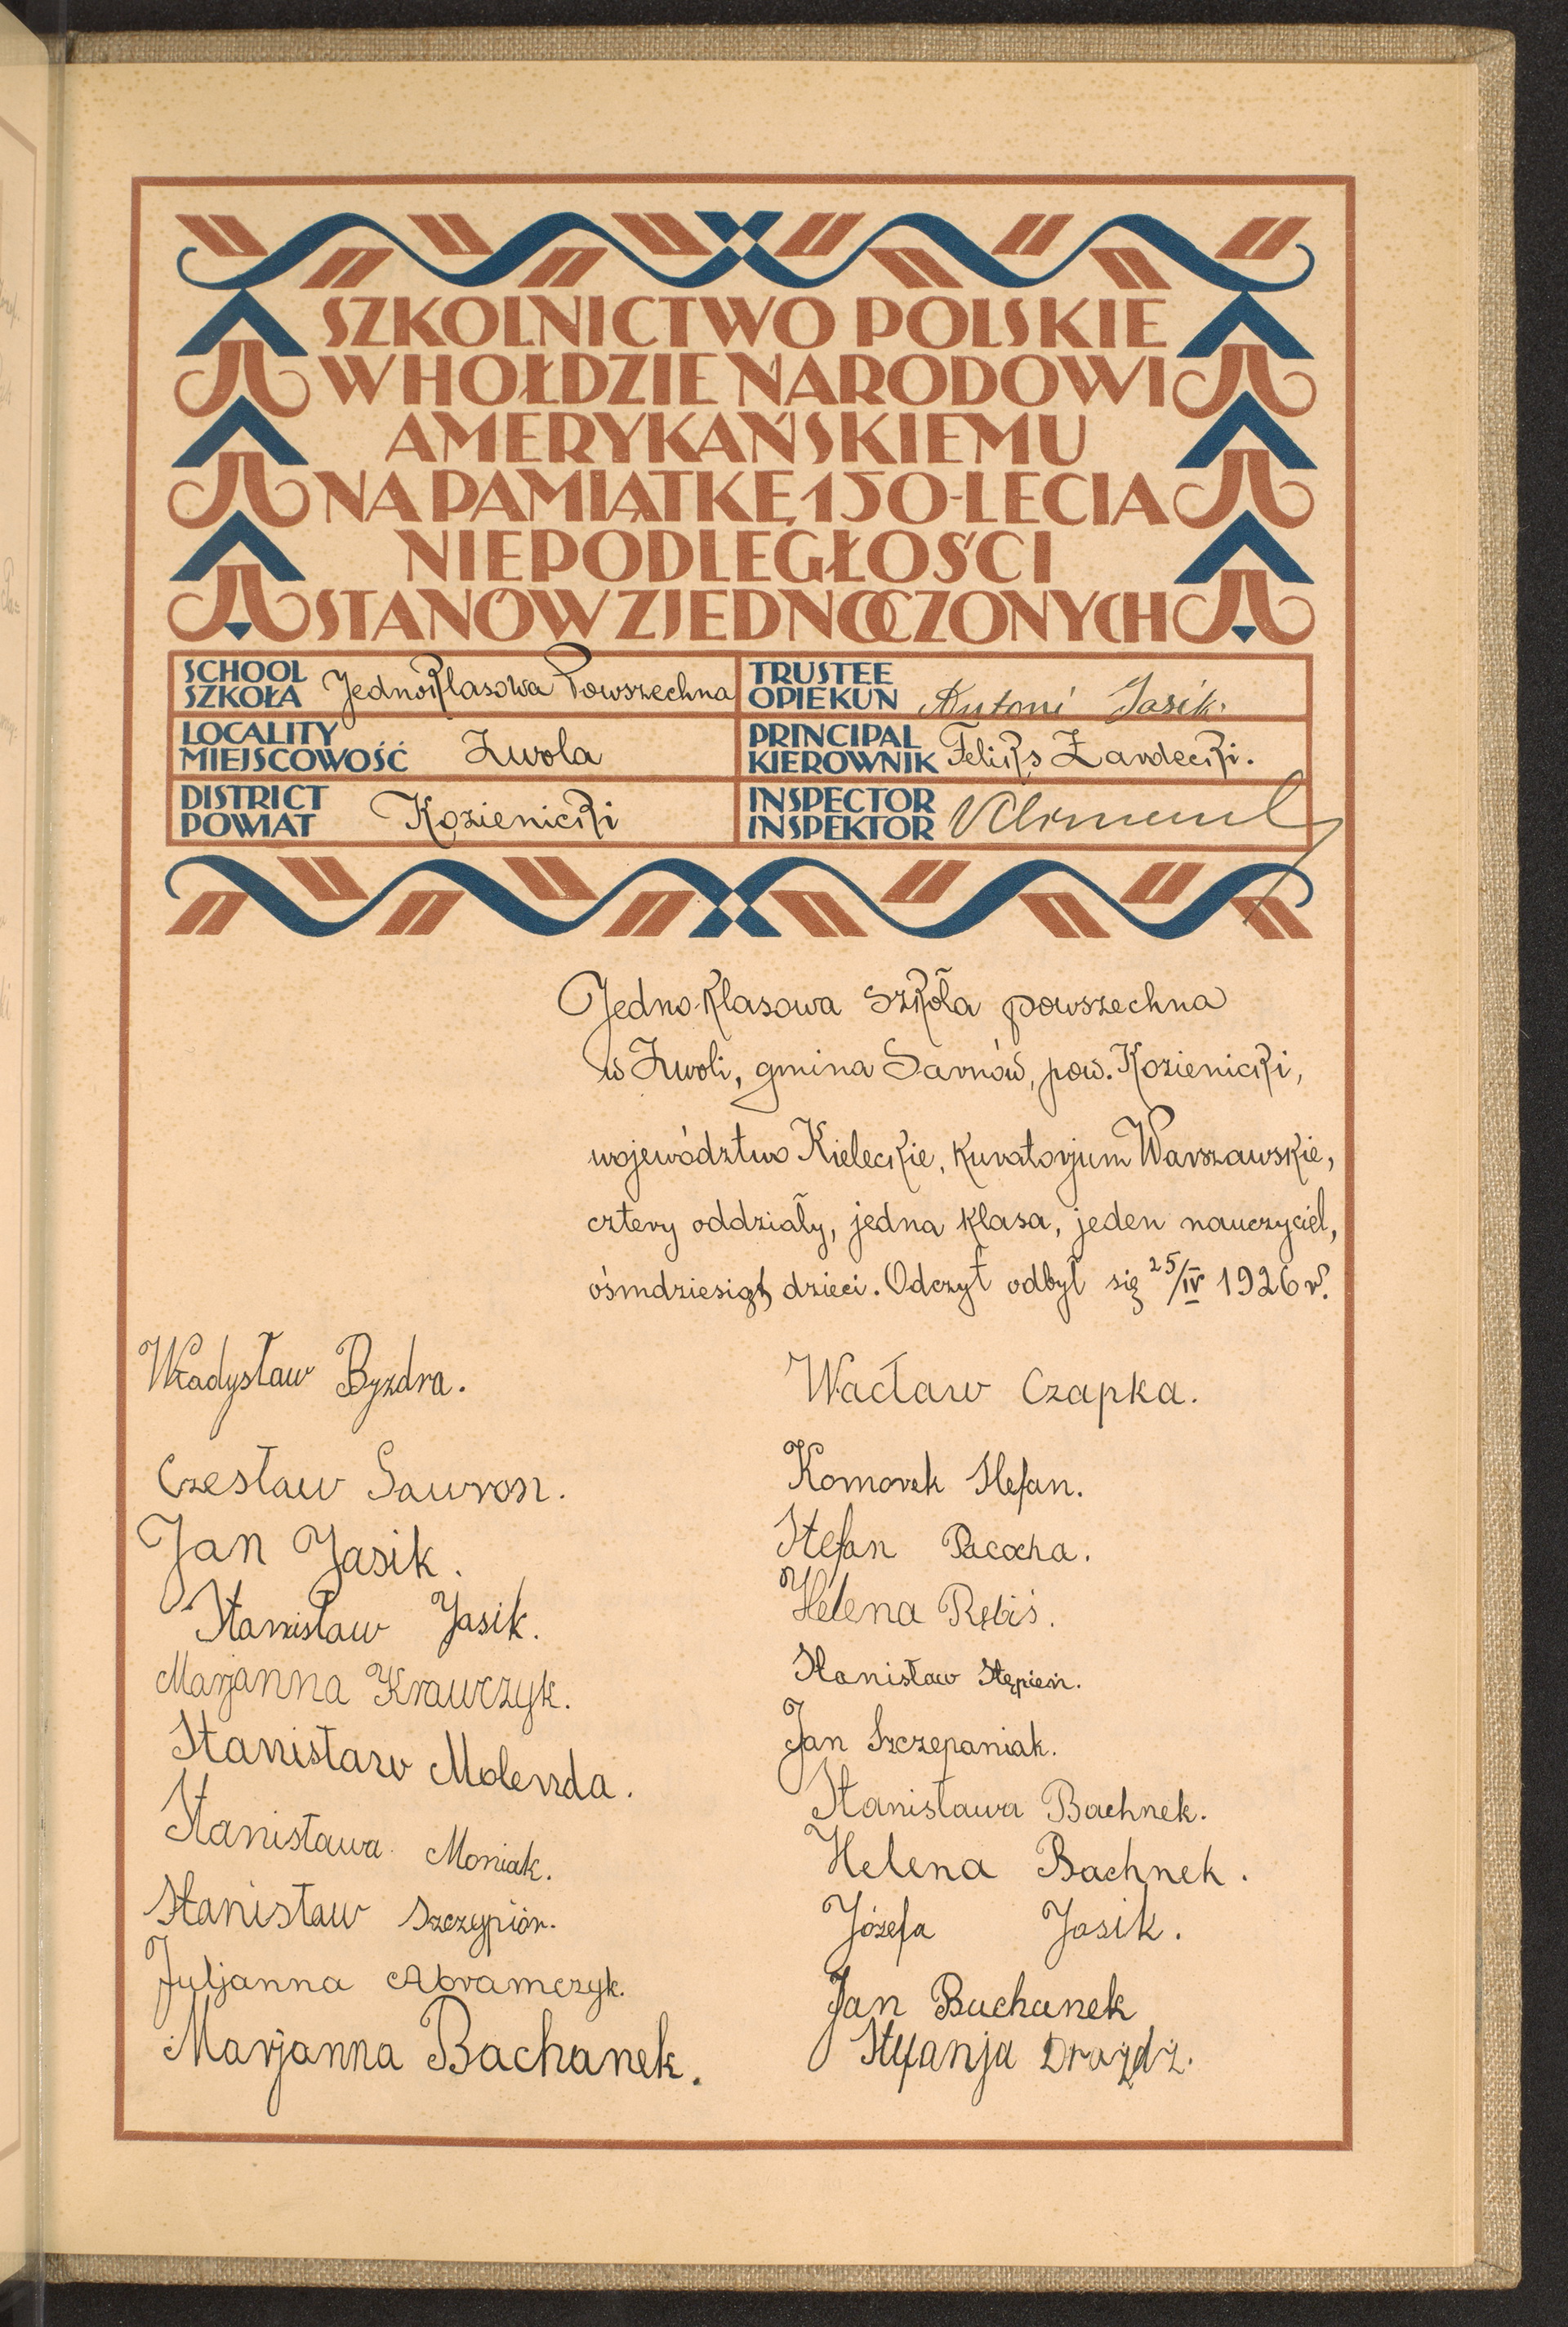 SZKOLNICTWO POLSKIE
W HOŁDZIE NARODOWI
AMERYKAŃSKIEMU
NA PAMIĄTKĘ 150-LECIA
NIEPODLEGŁOŚCI
STANÓW ZJEDNOCZONYCH
SCHOOL
SZKOŁA Jednoklasowa Powszechna
TRUSTEE
OPIEKUN Antoni Jasik.
LOCALITY
MIEJSCOWOŚĆ Zwola
PRINCIPAL
KIEROWNIK Feliks Żardecki.
DISTRICT
POWIAT Kozienicki
INSPECTOR
INSPEKTOR
Jedno-klasowa szkoła powszechna
w Zwoli, gmina Sarnów, pow. Kozienicki,
województwo Kieleckie, Kuratorjum Warszawskie,
cztery oddziały, jedna klasa, jeden nauczyciel,
ośmdziesiąt dzieci. Odczyt odbył się 25/IV 1926 r.
Władysław Byzdra.
Czesław Gawron.
Jan Jasik.
Stanisław Jasik.
Marjanna Krawczyk.
Stanisław Molenda.
Stanisława Moniak.
Stanisław Szczypiór.
Juljanna Abramczyk.
Marjanna Bachanek.
Wacław Czapka.
Komorek Stefan.
Stefan Pacocha.
Helena Rębiś.
Stanisław Stępień.
Jan Szczepaniak.
Stanisława Bachnek.
Helena Bachnek.
Józefa Jasik.
Jan Buchanek
Styfanja Drażdż.